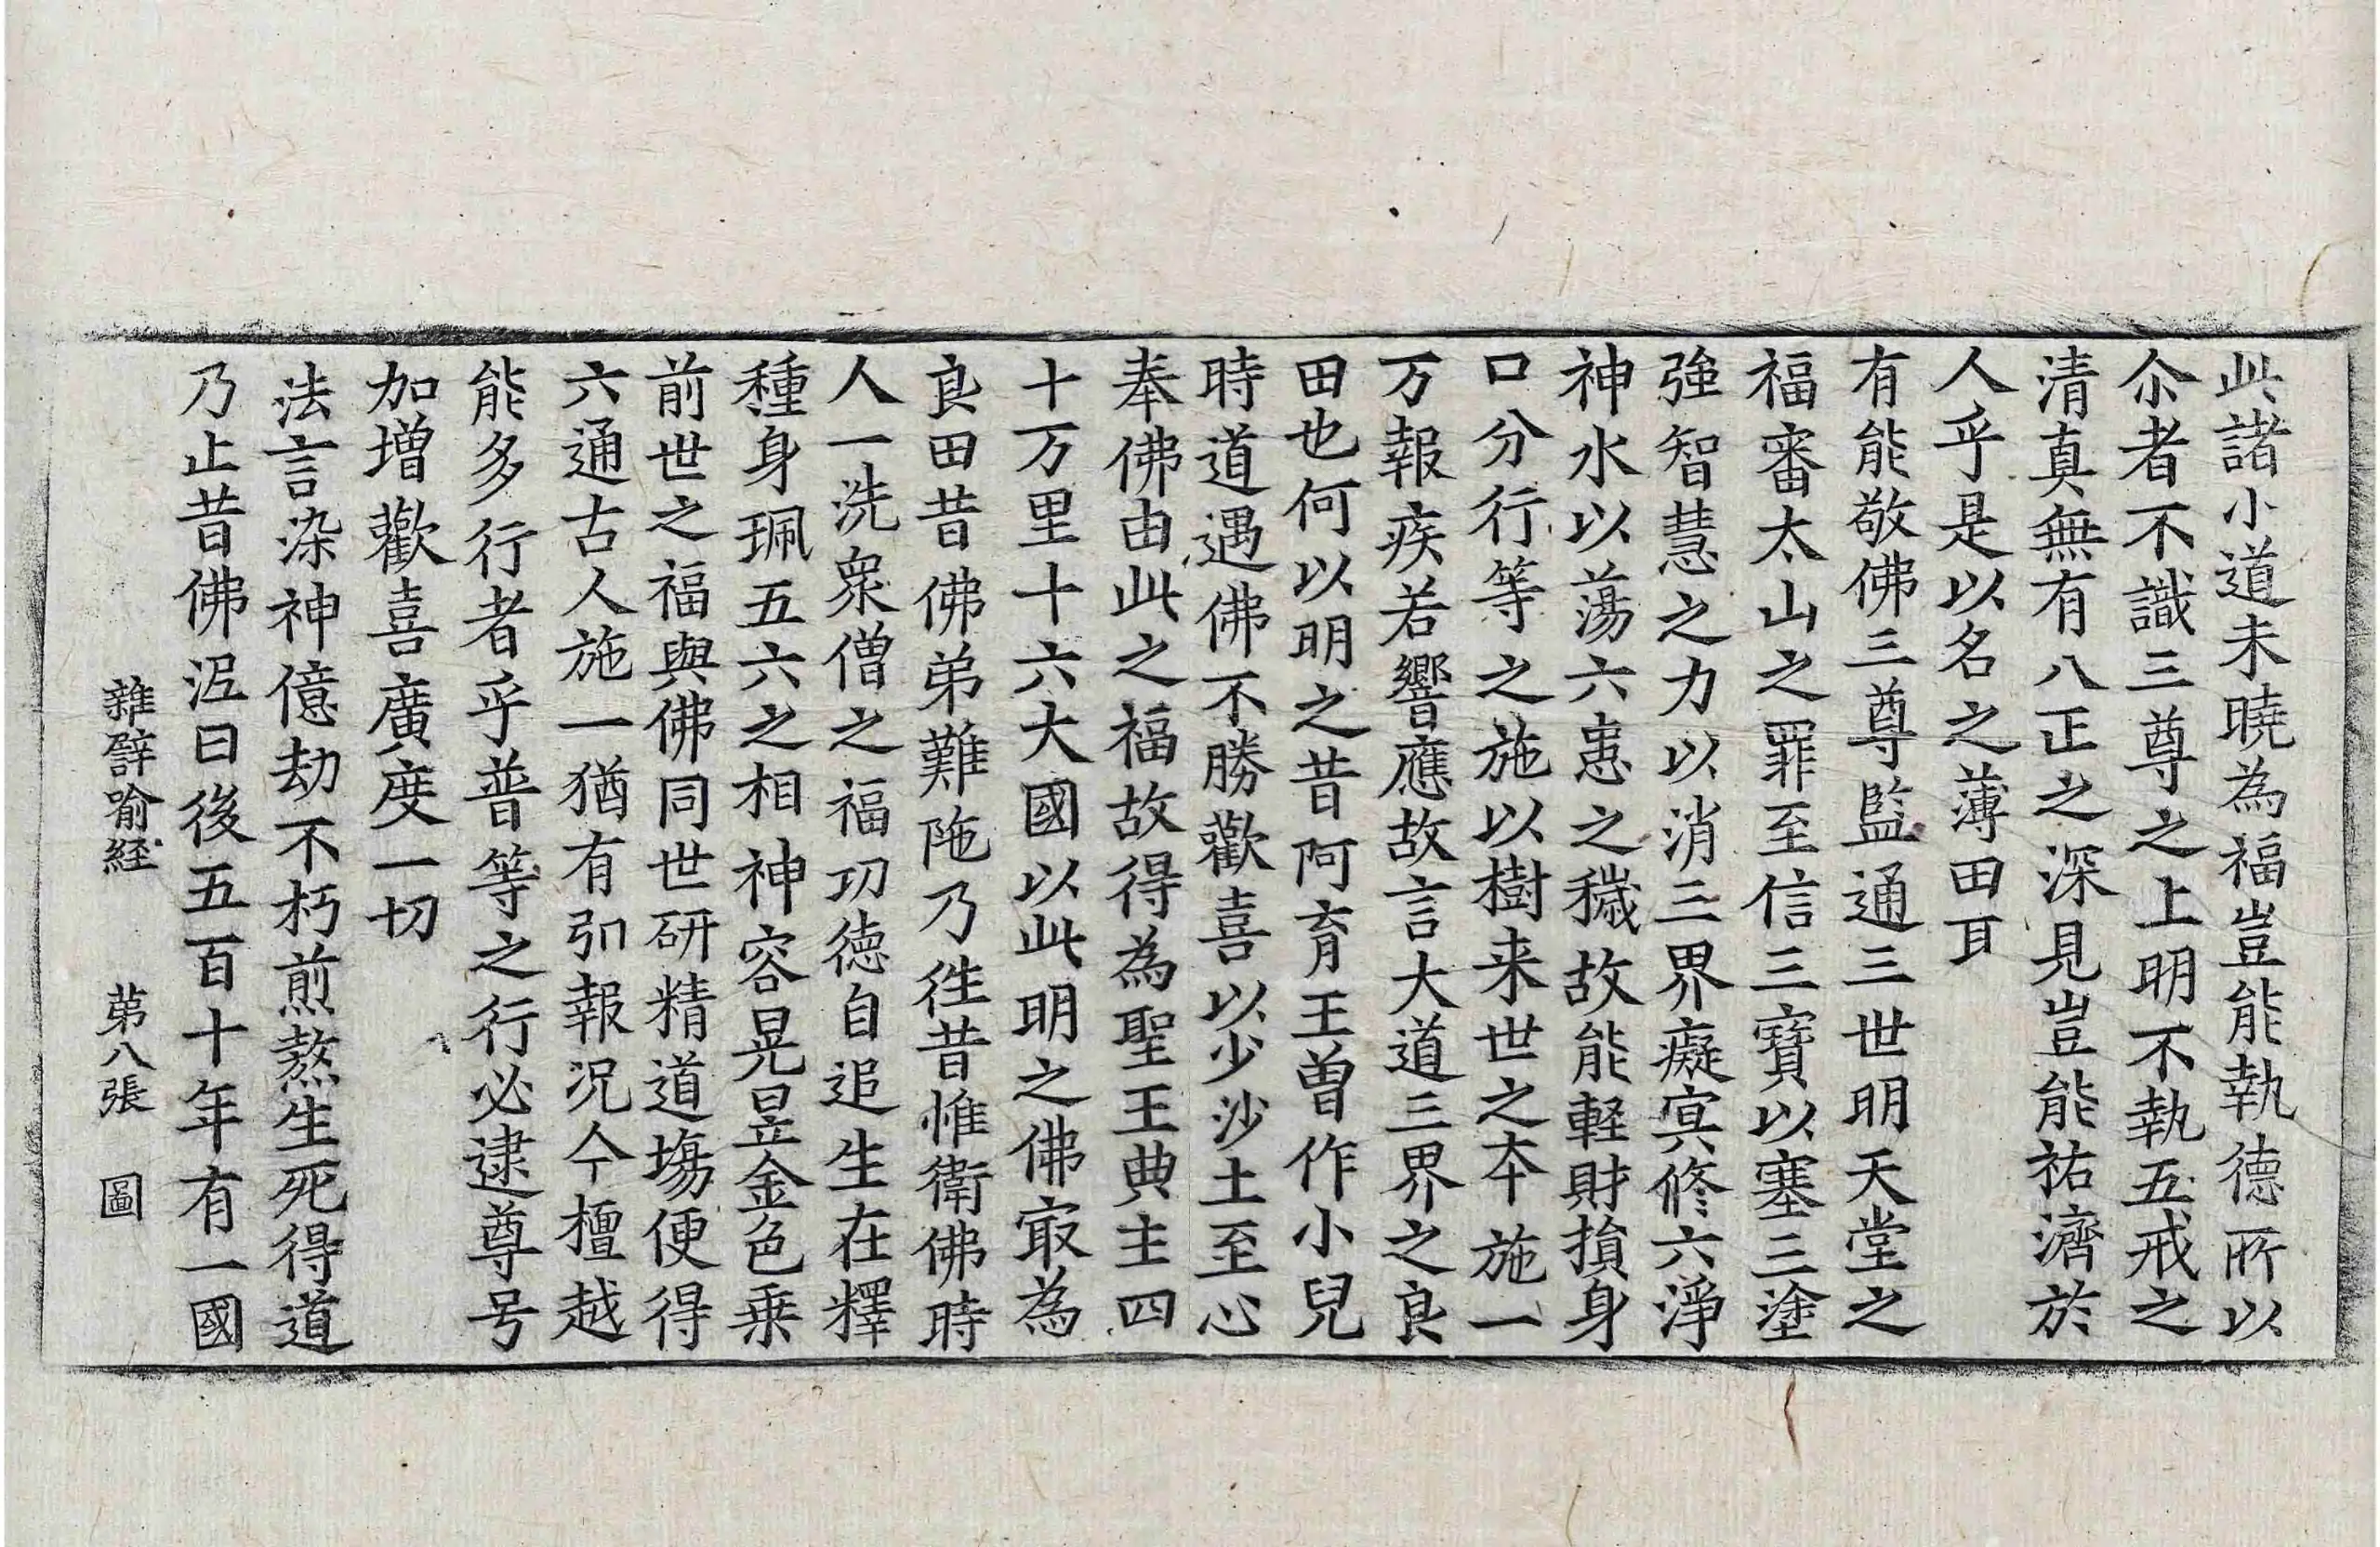 此諸小道未曉為福豈能執德所以
尒者不識三尊之上明不執五戒之
清真無有八正之深見豈能祐濟於
人乎是以名之薄田耳
有能敬佛三尊監通三世明天堂之
福審太山之罪至信三寶以塞三塗
強智慧之力以消三界癡㝠修六淨
神水以蕩六患之穢故能軽財損身
口分行等之施以樹来世之本施一
万報疾若響應故言大道三界之良
田也何以明之昔阿育王曽作小兒
時道遇佛不勝歡喜以少沙土至心
奉佛由此之福故得為聖王典主四
十万里十六大國以此明之佛㝡為
良田昔佛弟難陁乃徃昔惟衛佛時
人一洗衆僧之福功德自追生在釋
種身珮五六之相神容晃昱金色乗
前世之福與佛同世研精道塲便得
六通古人施一猶有弘報况今檀越
能多行者乎普等之行必逮尊号
加增歡喜廣度一切
法言染神億劫不朽煎熬生死得道
乃止昔佛泥曰後五百十年有一國
雜譬喻経　第八張　圖